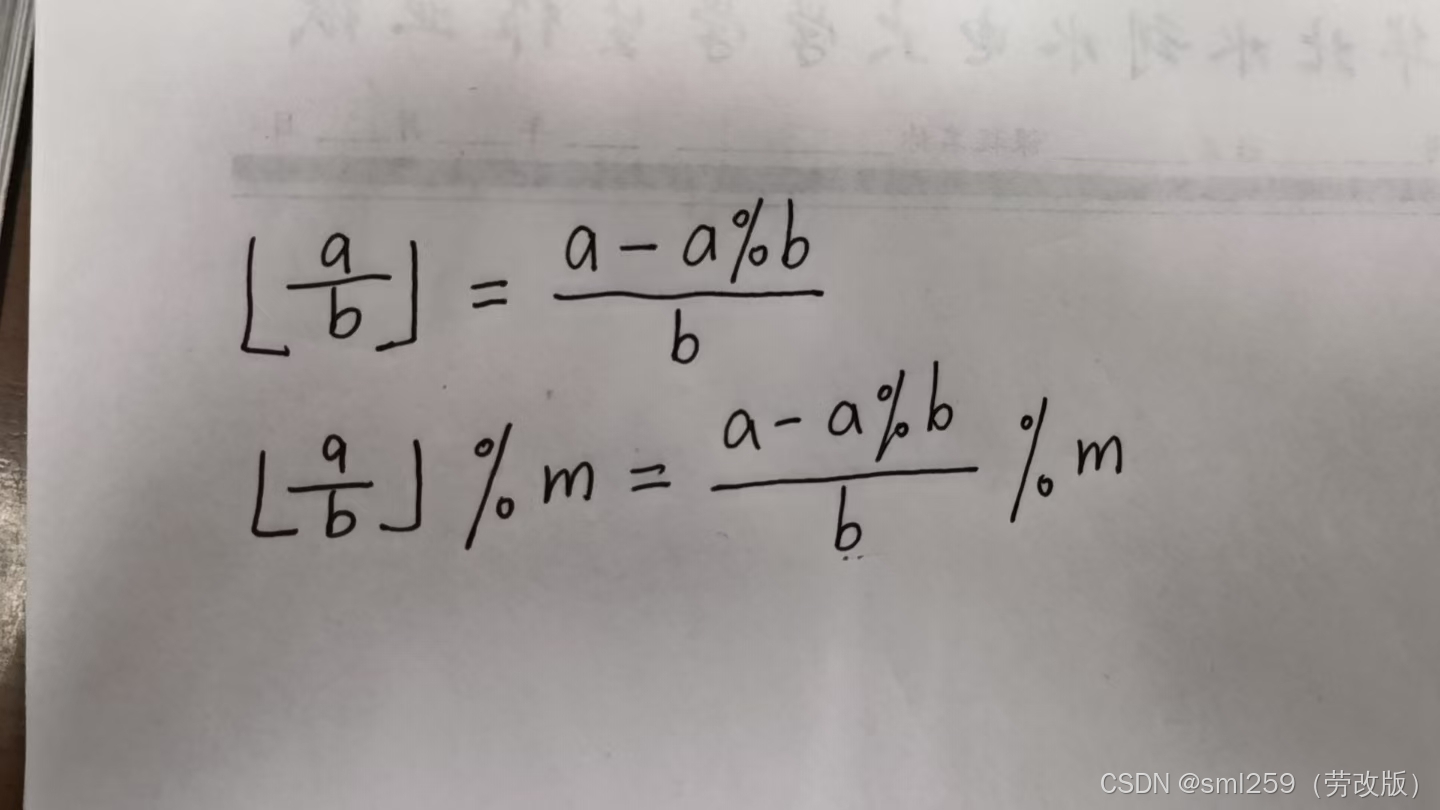 ⌊a/b⌋ = (a - a%b)/b
⌊a/b⌋ % m = (a - a%b)/b % m
CSDN @sml259（劳改版）